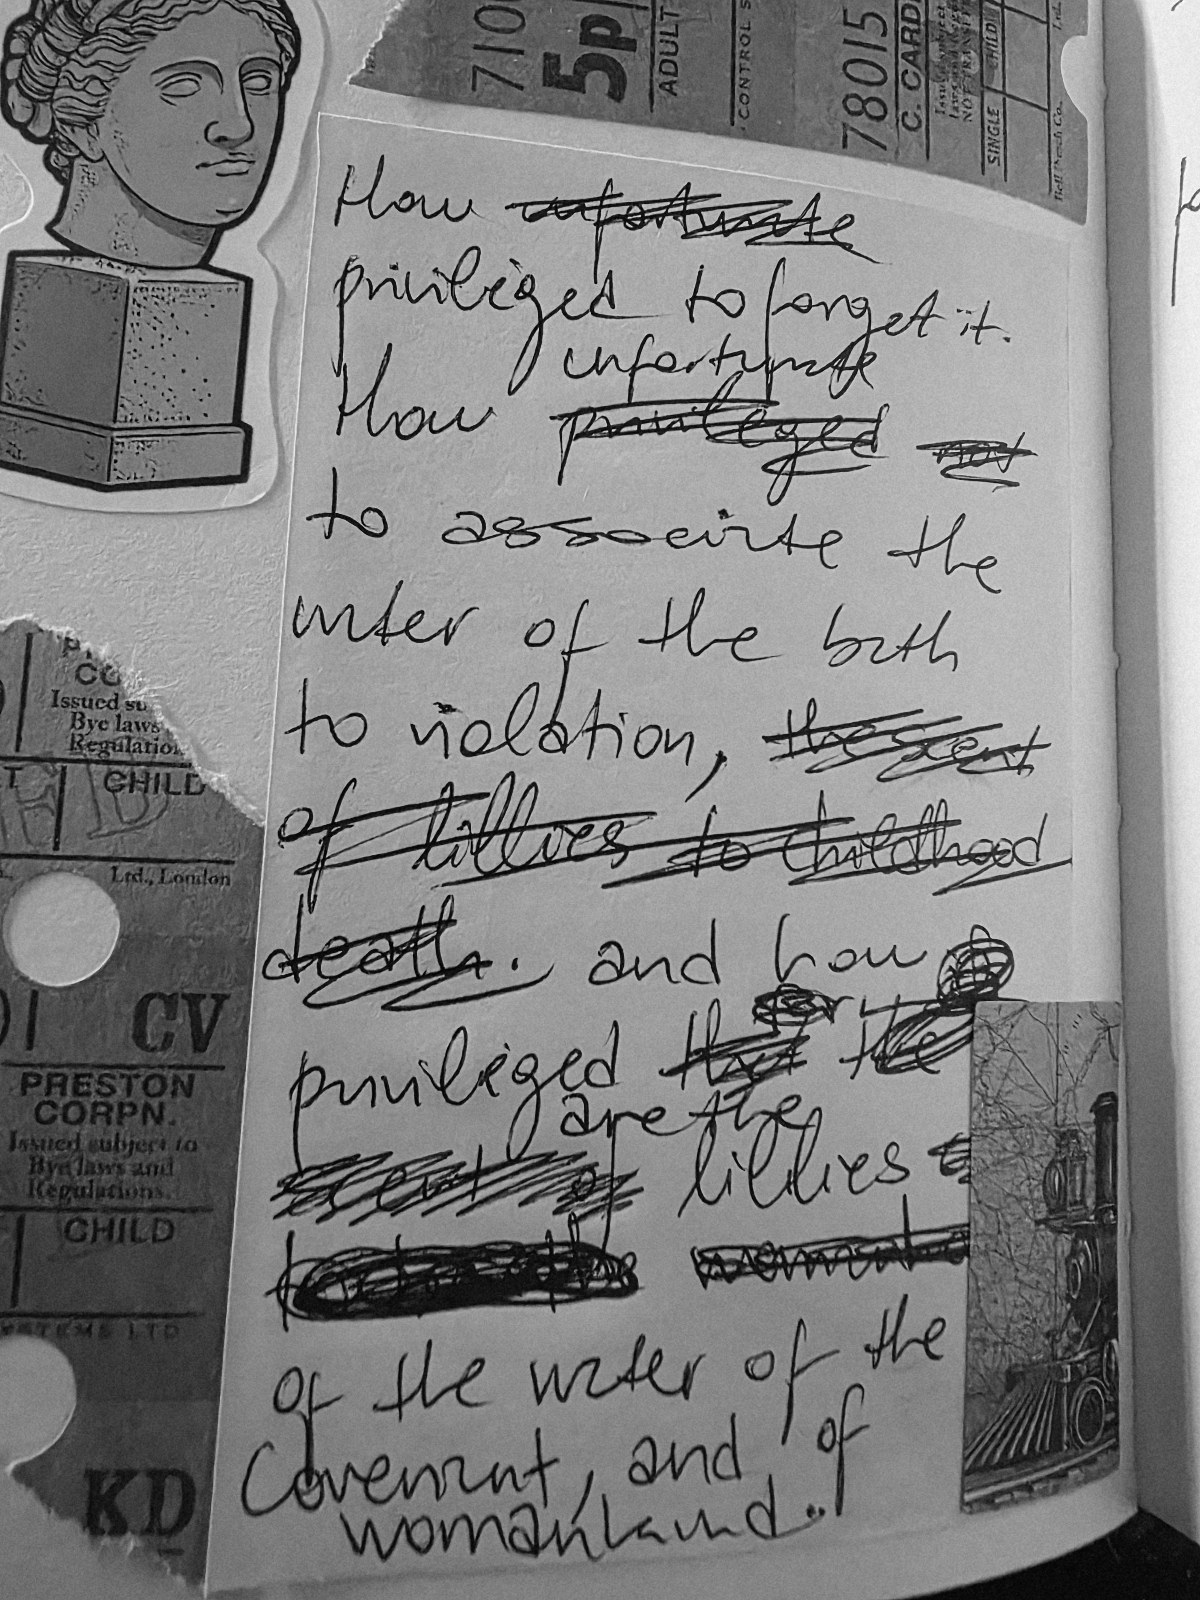 710
5p
ADULT
CONTROL S
78015
C. CARD
SINGLE
CHILD
Bell Punch Co.
How unfortunate
privileged to forget it.
unfortunate
How privileged not
to associate the
water of the bath
to violation, the scent
of lillies to childhood
death. and how
for
privileged that the
are the
scent of lillies
of the water of the
Covenant, and of
womanland..
CO
Issued su
Bye laws
Regulation
T
CHILD
Ltd., London
CV
PRESTON
CORPN.
Issued subject to
Bye laws and
Regulations.
CHILD
YSTEMS LTD
KD